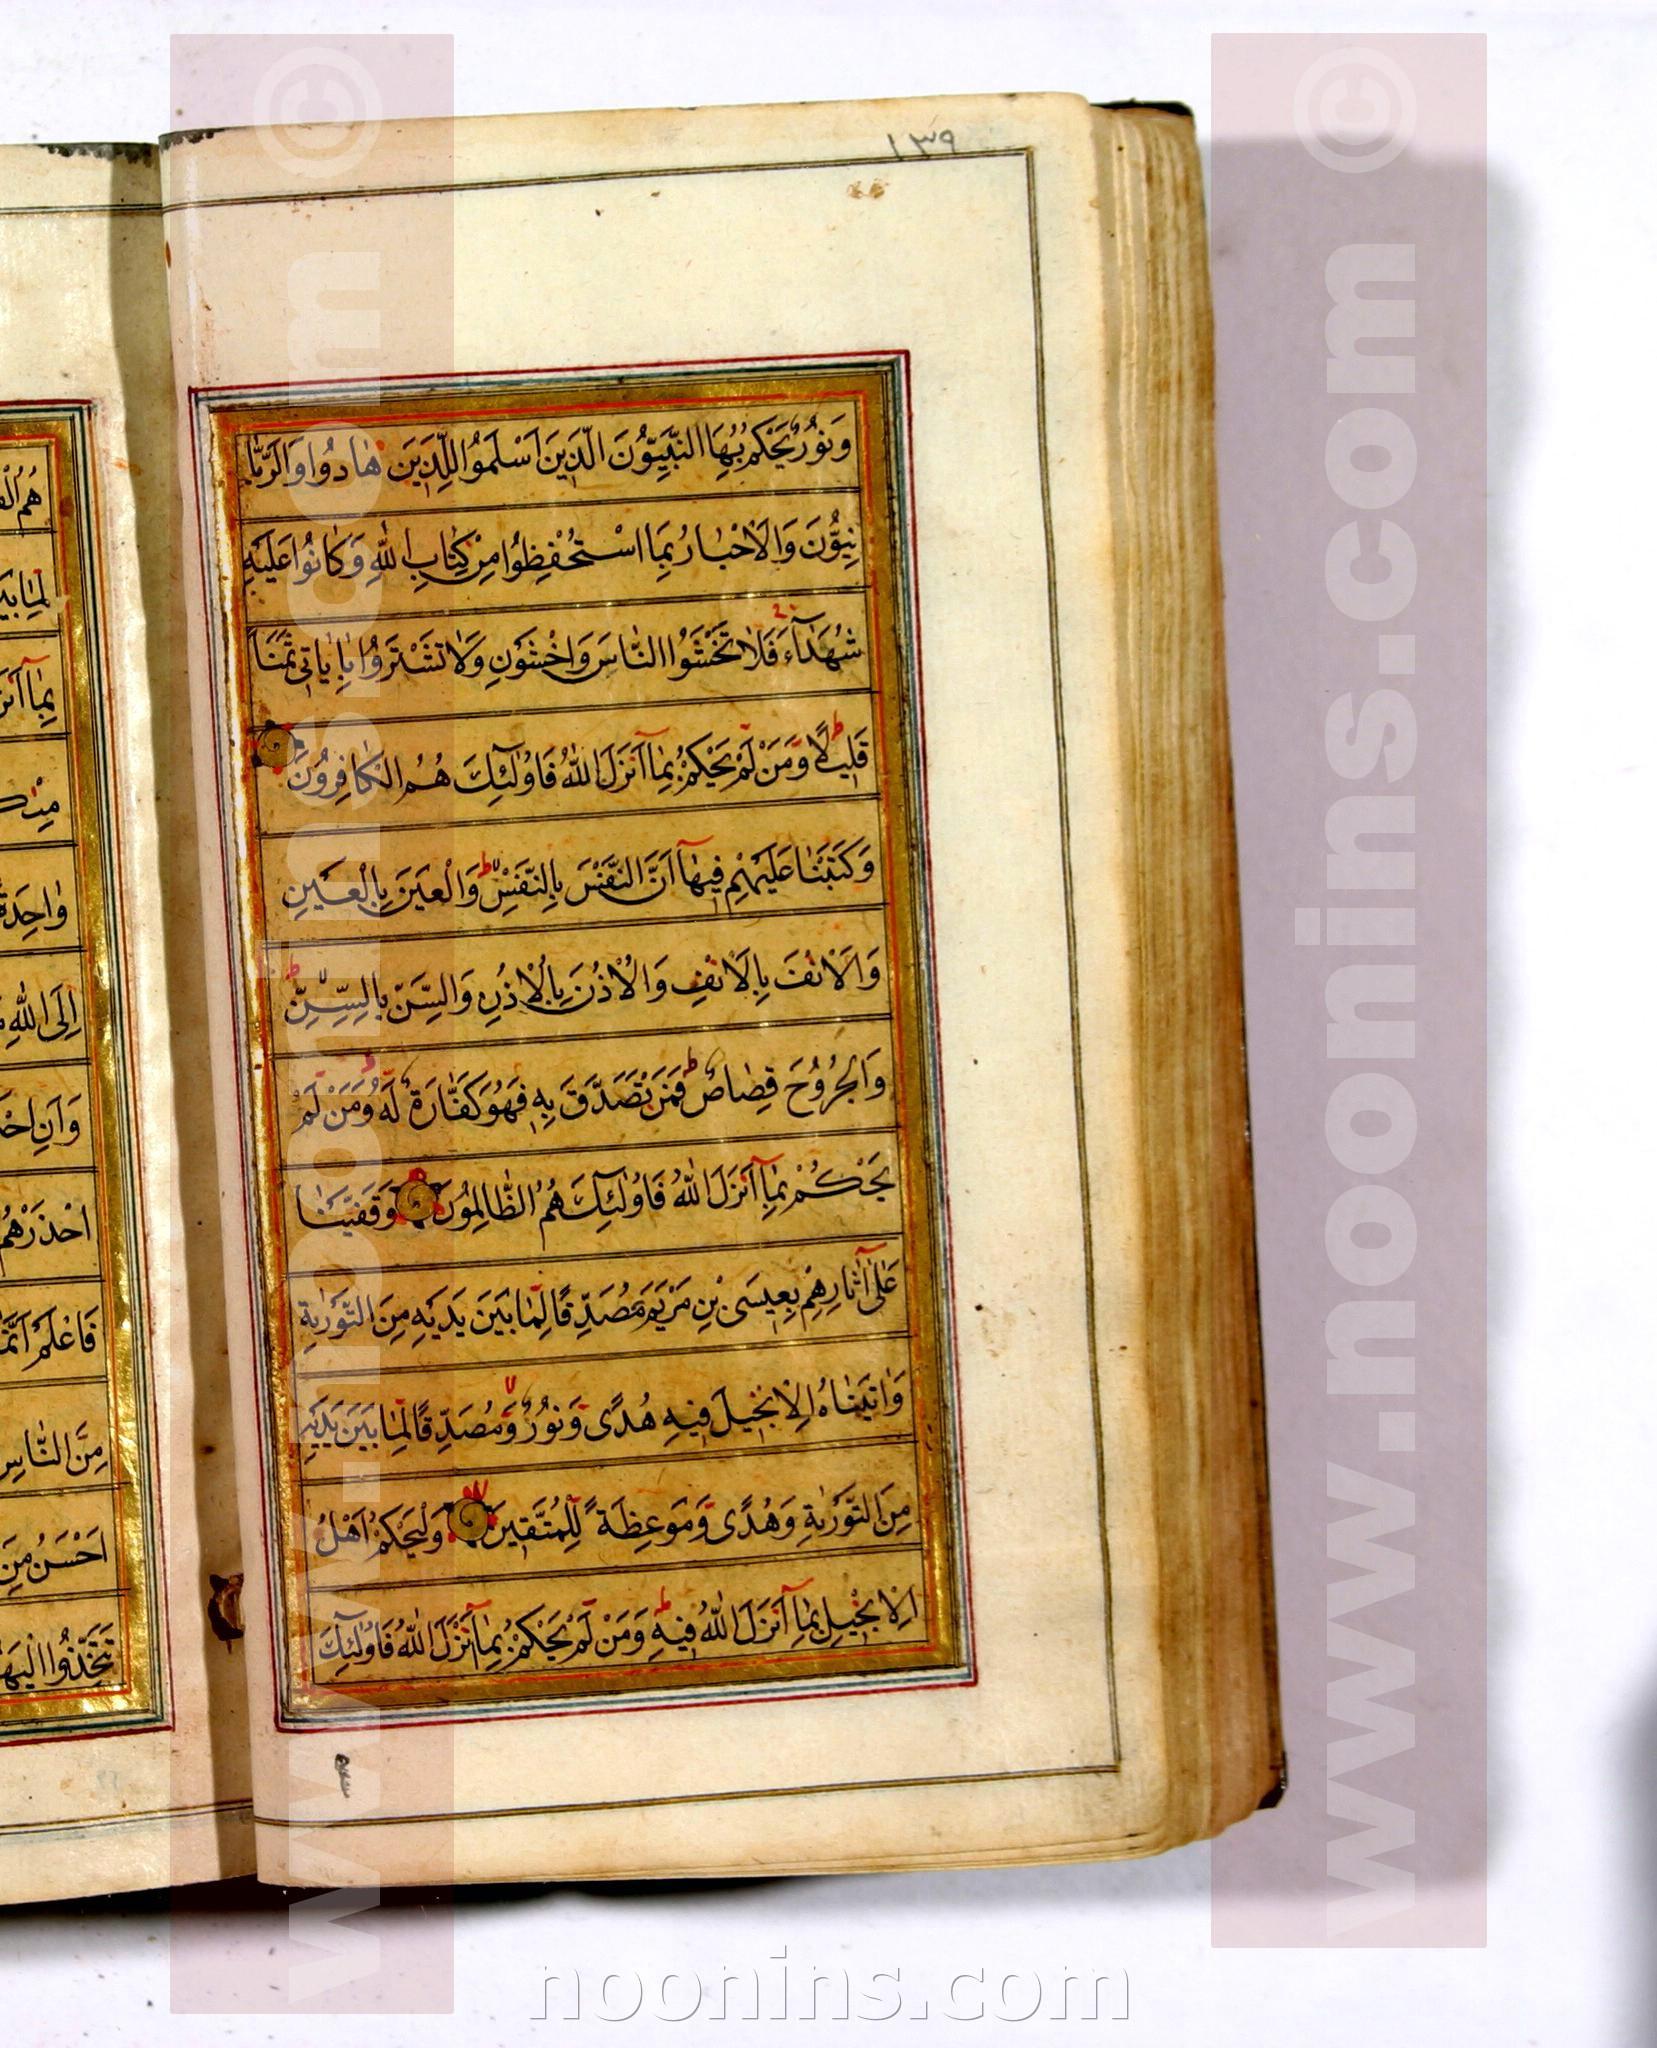 ١٣٩
وَنُورٌ يَحْكُمُ بِهَا النَّبِيُّونَ الَّذِينَ اَسْلَمُوا لِلَّذِينَ هَادُوا وَالرَّبَّا
نِيُّونَ وَالْاَحْبَارُ بِمَا اسْتُحْفِظُوا مِنْ كِتَابِ اللّٰهِ وَكَانُوا عَلَيْهِ
شُهَدَآءَ فَلَا تَخْشَوُا النَّاسَ وَاخْشَوْنِ وَلَا تَشْتَرُوا بِاٰيَاتِى ثَمَنًا
قَلِيلًا وَمَنْ لَمْ يَحْكُمْ بِمَآ اَنْزَلَ اللّٰهُ فَاُولٰٓئِكَ هُمُ الْكَافِرُونَ
وَكَتَبْنَا عَلَيْهِمْ فِيهَآ اَنَّ النَّفْسَ بِالنَّفْسِ وَالْعَيْنَ بِالْعَيْنِ
وَالْاَنْفَ بِالْاَنْفِ وَالْاُذُنَ بِالْاُذُنِ وَالسِّنَّ بِالسِّنِّ
وَالْجُرُوحَ قِصَاصٌ فَمَنْ تَصَدَّقَ بِهِ فَهُوَ كَفَّارَةٌ لَهُ وَمَنْ لَمْ
يَحْكُمْ بِمَآ اَنْزَلَ اللّٰهُ فَاُولٰٓئِكَ هُمُ الظَّالِمُونَ وَقَفَّيْنَا
عَلٰٓى اٰثَارِهِمْ بِعِيسَى بْنِ مَرْيَمَ مُصَدِّقًا لِمَا بَيْنَ يَدَيْهِ مِنَ التَّوْرٰيةِ
وَاٰتَيْنَاهُ الْاِنْجِيلَ فِيهِ هُدًى وَنُورٌ وَمُصَدِّقًا لِمَا بَيْنَ يَدَيْهِ
مِنَ التَّوْرٰيةِ وَهُدًى وَمَوْعِظَةً لِلْمُتَّقِينَ وَلْيَحْكُمْ اَهْلُ
الْاِنْجِيلِ بِمَآ اَنْزَلَ اللّٰهُ فِيهِ وَمَنْ لَمْ يَحْكُمْ بِمَآ اَنْزَلَ اللّٰهُ فَاُولٰٓئِكَ
لِمَا
بِمَآ
وَاحِدَةً
اِلَى اللّٰهِ
وَاَنِ
احْذَرْهُمْ
فَاعْلَمْ اَنَّمَا
مِنَ النَّاسِ
اَحْسَنُ مِنَ
© www.noonins.com
© www.noonins.com
noonins.com